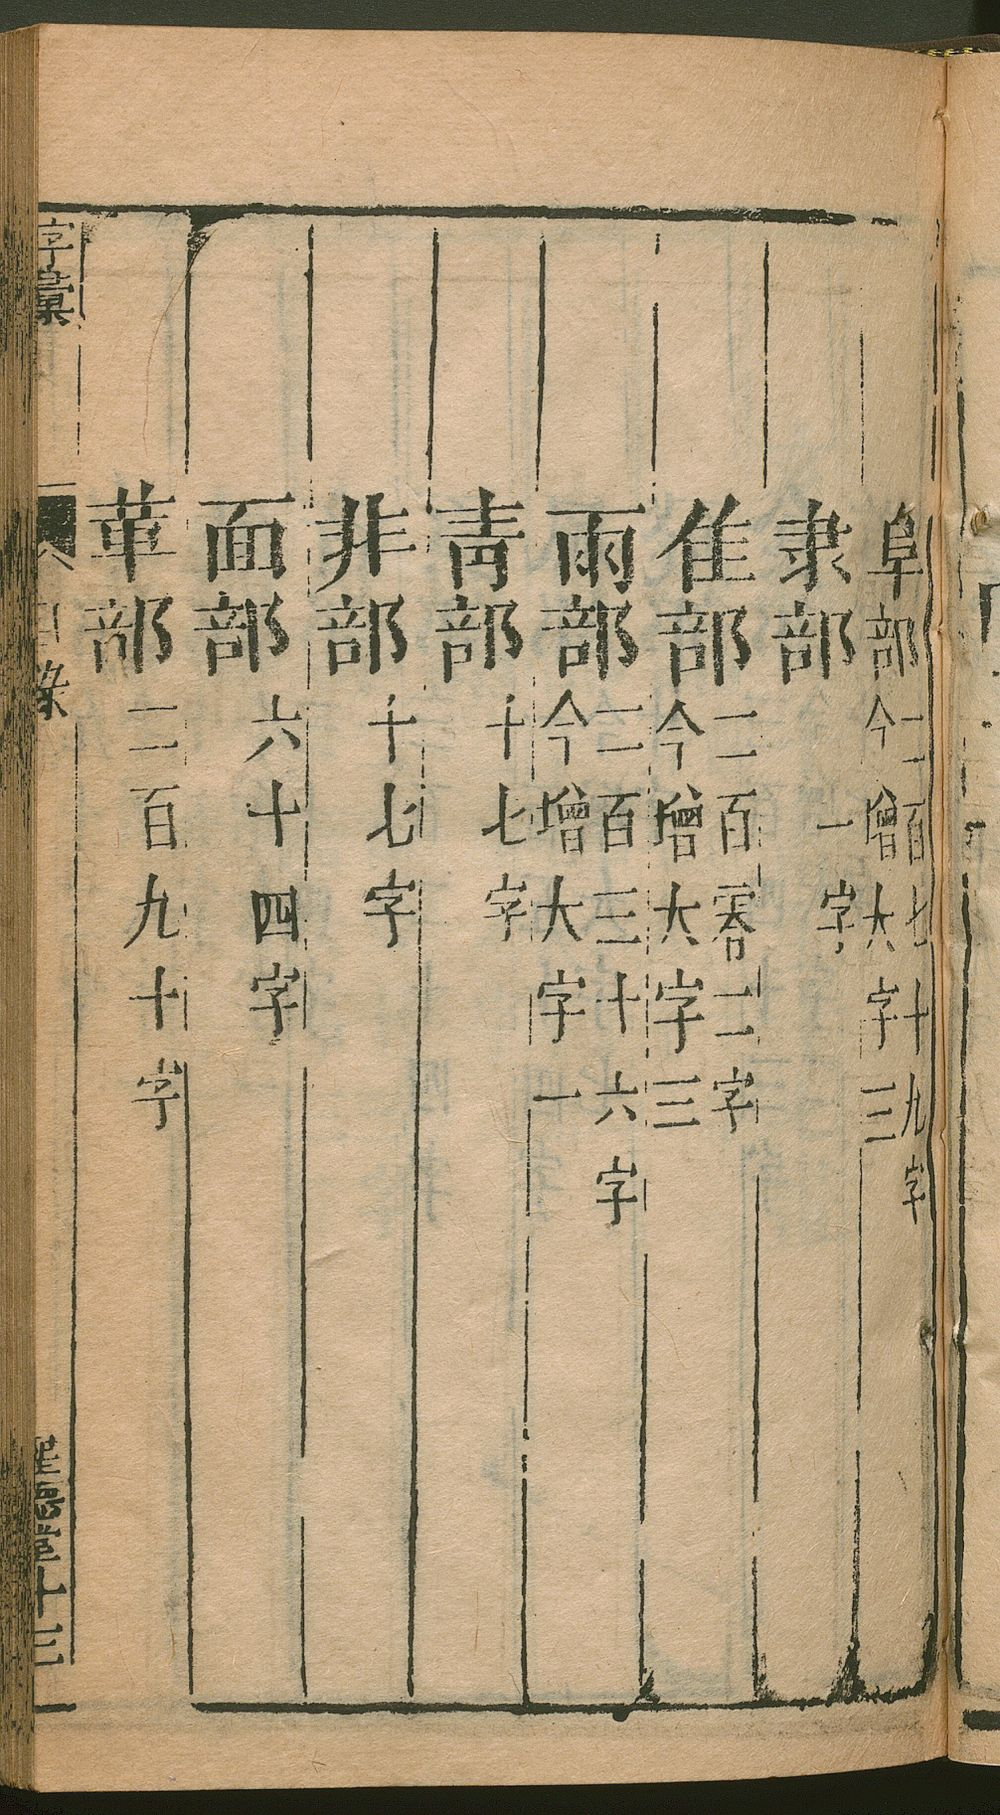 阜部二百七十九字
今增大字三
隶部一字
隹部二百零二字
今增大字三
雨部二百三十六字
今增大字一
青部十七字
非部十七字
面部六十四字
革部二百九十字
字彙
目錄